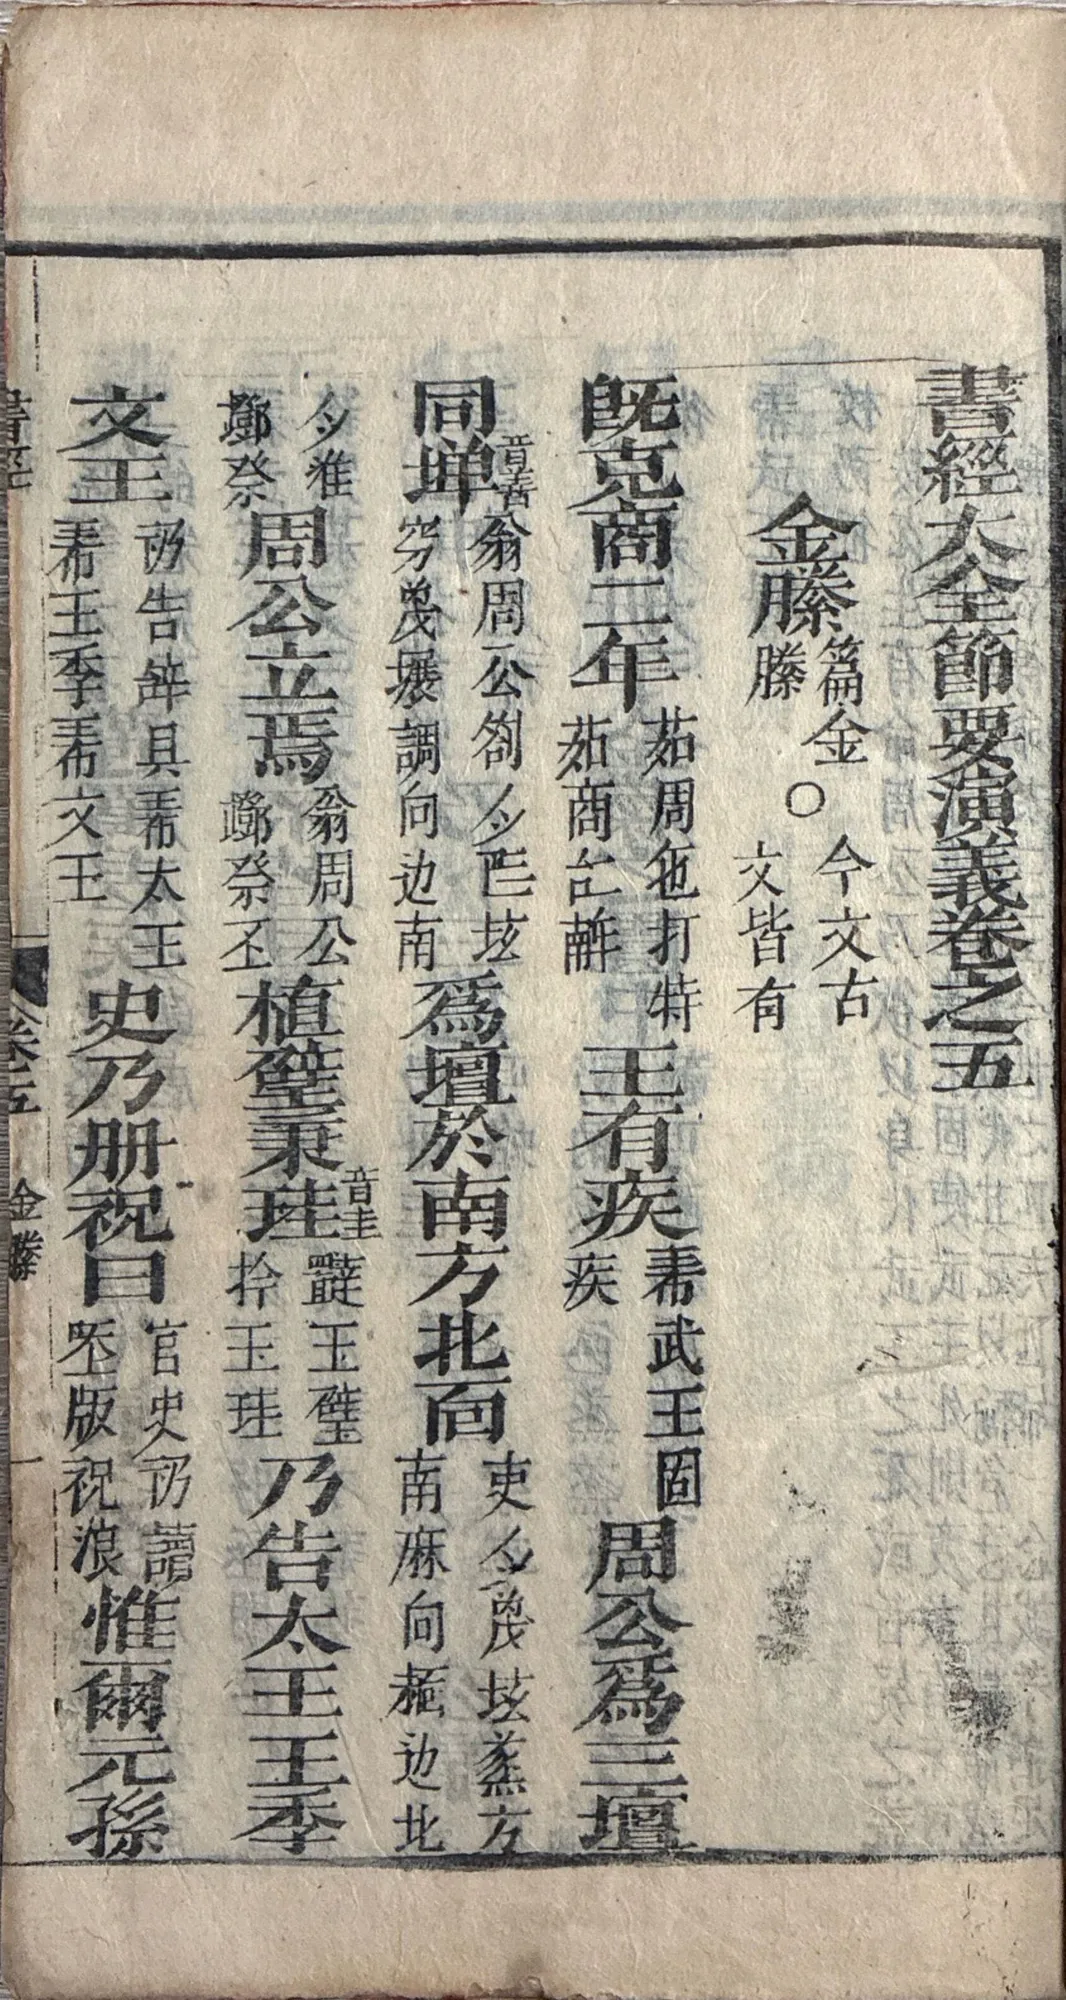 書經大全節要演義卷之五
金縢篇金縢○今文古文皆有
既克商二年茹周㐌打特茹商𠄩𢆥王有疾𢂞武王固疾周公爲三壇
同墠音善翁周公芻𫜵𠀧坛穷調向边南爲壇於南方北面吏𫜵坛蒸方南麻向边北
𫜵准祭周公立焉翁周公祭丕植璧秉珪音圭玉璧拎玉珪乃告太王王季
文王告辞具𢂞太王𢂞王季𢂞文王史乃册祝曰官史讀版祝浪惟爾元孫
書經 卷五 金縢 一